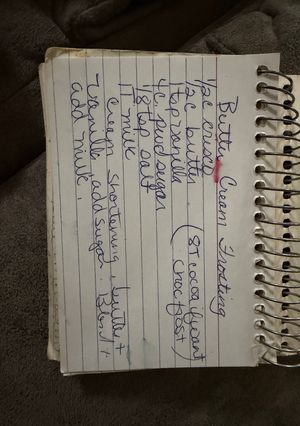 Butter Cream Frosting
1/2 c crisco
1/2 c butter (8T cocoa if want
1 tsp vanilla choc frost)
4 c pwd sugar
1/8 tsp salt
1T milk
Cream shortening, butter +
vanilla, add sugar. Beat +
add milk.